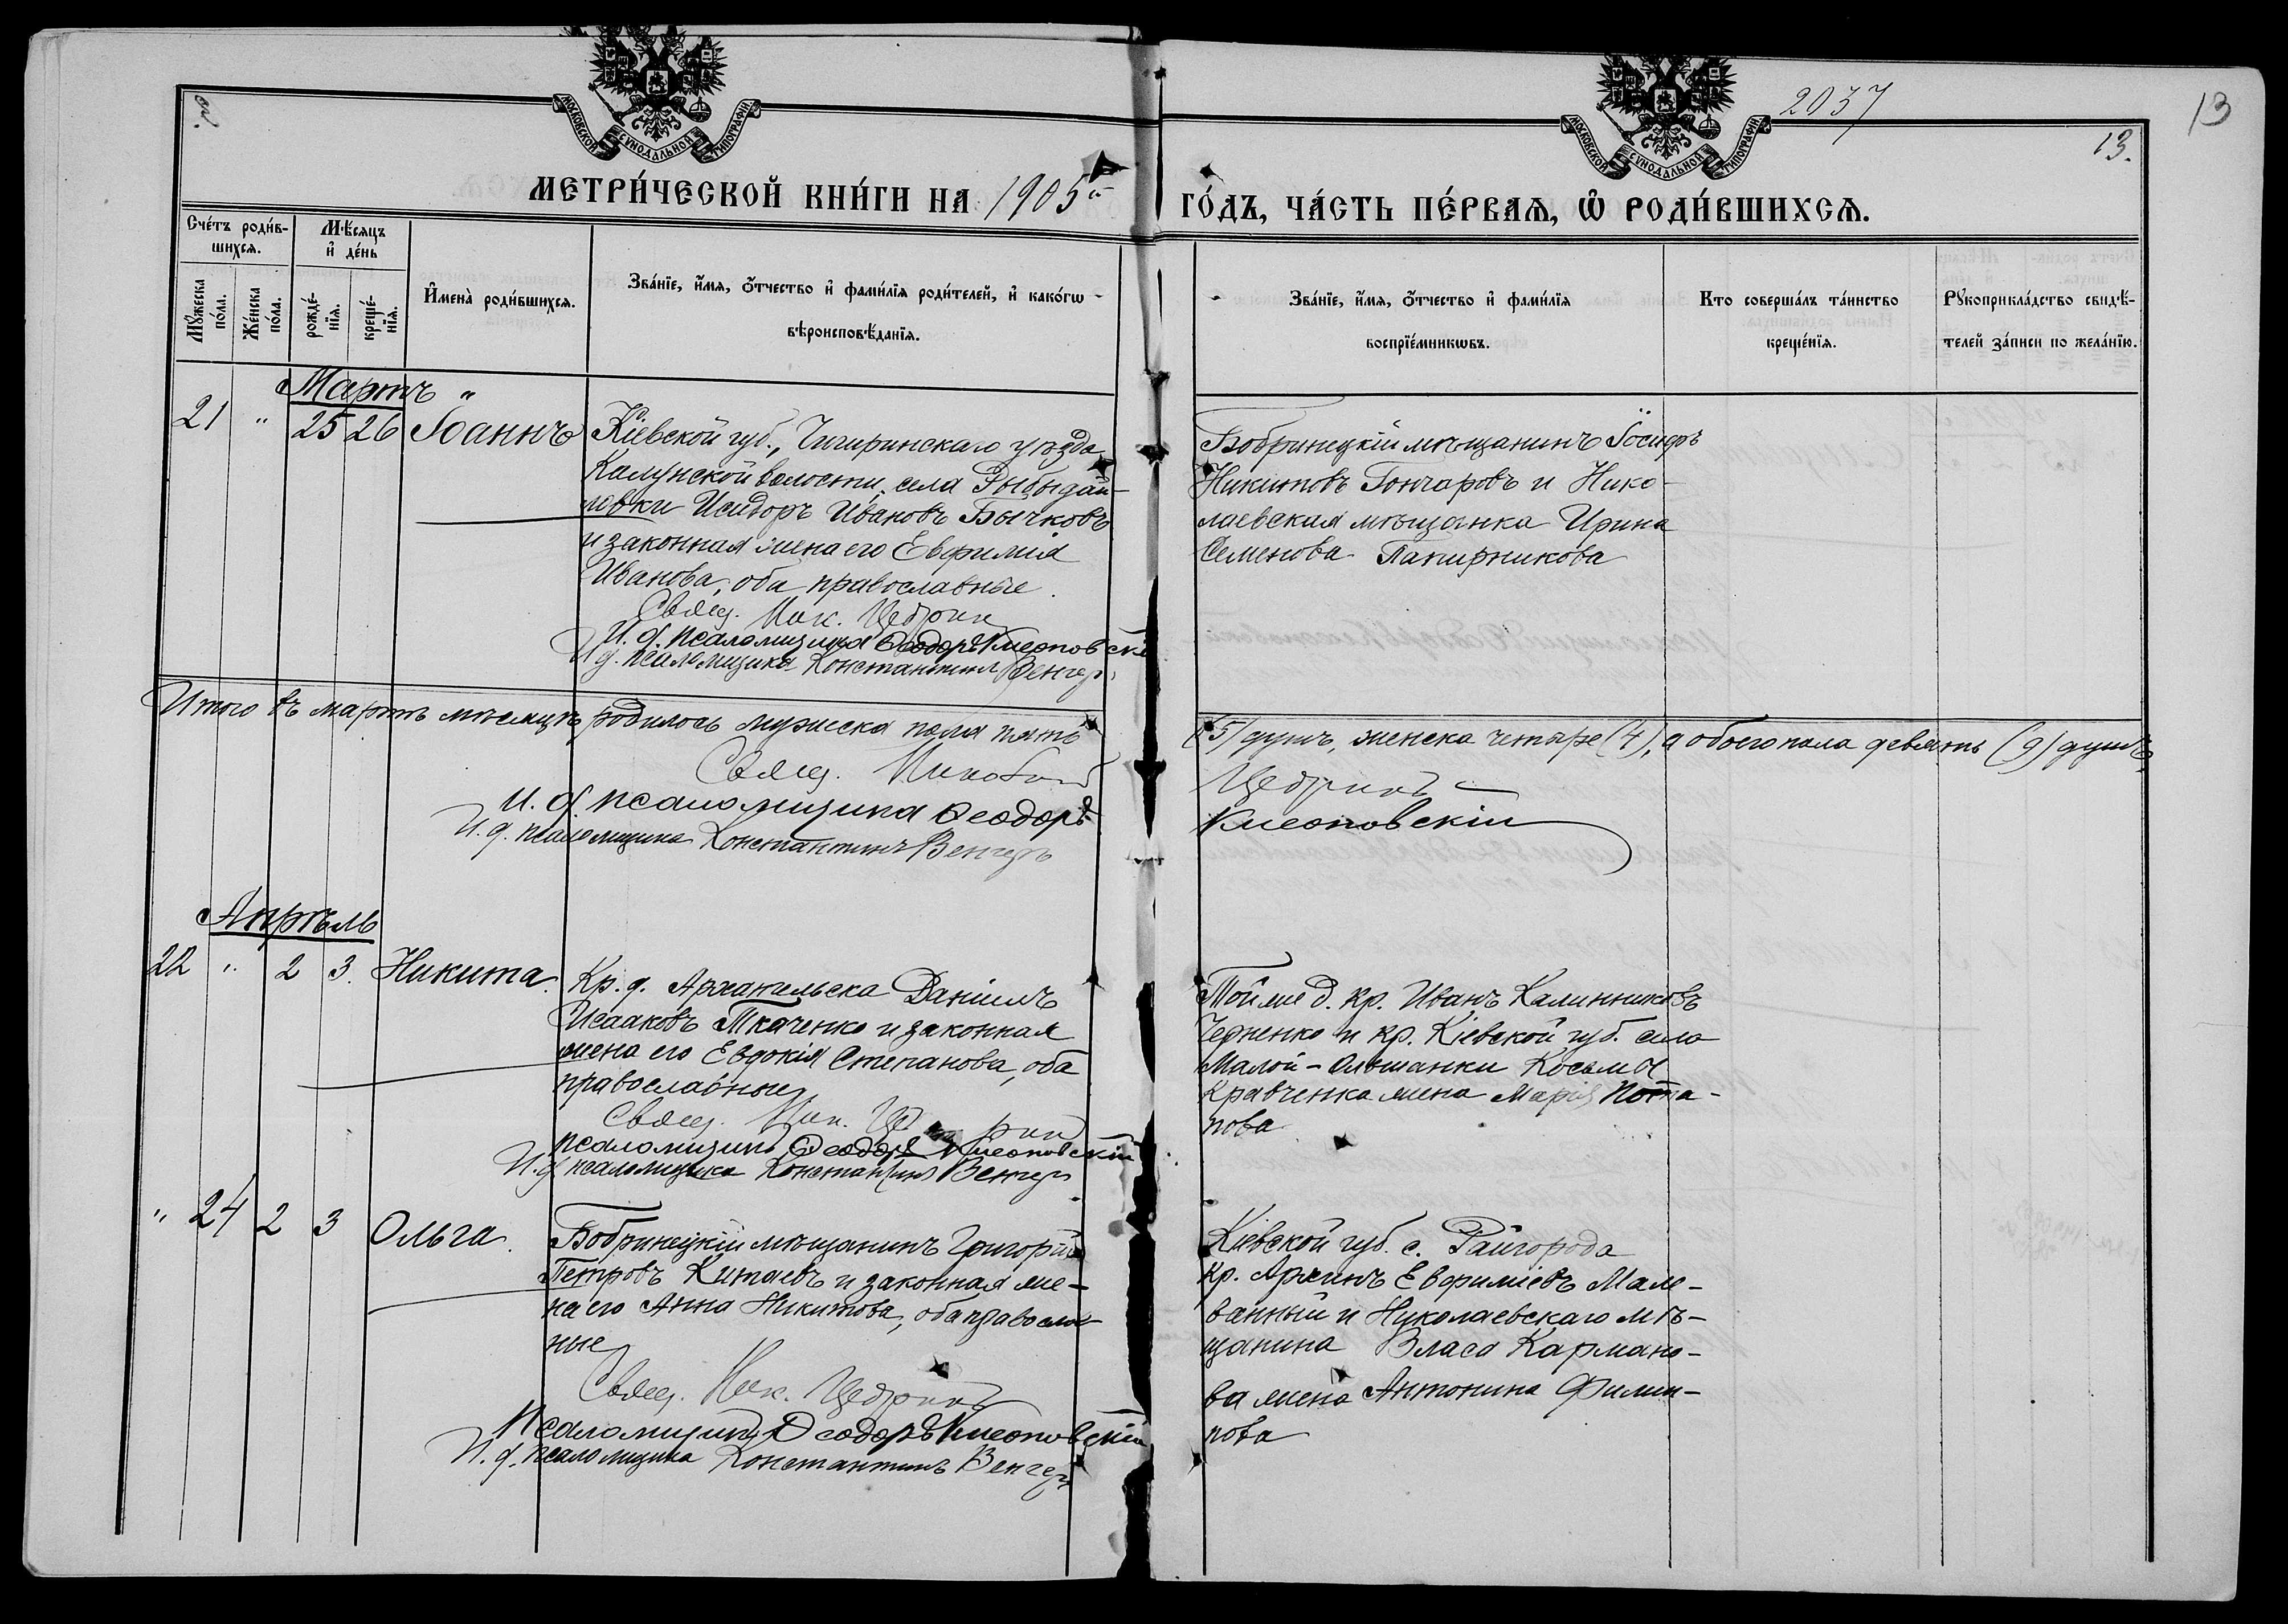 2037
13
13.
МОСКОВСКОЙ СѴНОДАЛЬНОЙ ТИПОГРАФІИ
МОСКОВСКОЙ СѴНОДАЛЬНОЙ ТИПОГРАФІИ
МЕТРИ́ЧЕСКОЙ КНИ́ГИ НА 1905й ГО́ДЪ, ЧА́СТЬ ПЕ́РВАѦ, Ѡ РОДИ́ВШИХСѦ.
Сче́тъ роди́в-
шихсѧ.
Мꙋ́жеска
по́ла.
Же́нска
по́ла.
Мѣ́сяцъ
и҆ де́нь
рожде́-
нїѧ.
креще́-
нїѧ.
И҆мена̀ роди́вшихсѧ.
Зва́нїе, и҆́мѧ, ѻ҆́тчество и҆ фами́лїѧ роди́телей, и҆ како́гѡ
вѣроисповѣ́данїѧ.
Зва́нїе, и҆́мѧ, ѻ҆́тчество и҆ фами́лїѧ
воспрїе́мникѡвъ.
Кто соверша́лъ та́инство
креще́нїѧ.
Рꙋкоприкла́дство свидѣ́-
телей за́писи по жела́нїю.
Мартъ
21 " 25 26 Іоаннъ
Кіевской губ., Чигиринскаго уѣзда
волости, села Рыбыдай-
ловки Исидоръ Ивановъ Бычковъ
и законная жена его Евфимія
Иванова, оба православные.
Свящ. Ник. Цедрин
И. д. псаломщика Ѳеодоръ Клеоповскі
И д. псаломщика Константин Венгер
Бобринецкій мѣщанинъ Іосифъ
Никитовъ Гончаровъ и Нико-
лаевская мѣщанка Ирина
Семенова Папирникова
Итого въ мартѣ мѣсяцѣ родилось мужеска пола пять (5) душъ, женска четыре (4), а обоего пола девять (9) душъ.
Свящ. Николай Цедринъ
И. д. псаломщика Ѳеодоръ Клеоповскій
И. д. псаломщика Константинъ Венгеръ
Апрѣль
22 " 2 3. Никита.
Кр. д. Архангельска Даніилъ
Исааковъ Ткаченко и законная
жена его Евдокія Степанова, оба
православные
Свящ. Ник. Цедрин
псаломщикъ Ѳеодоръ Клеоповскій
И. д. псаломщика Константин Венгеръ
Той же д. кр. Иванъ Калинниковъ
Черненко и кр. Кіевской губ. села
Малой-Ольшанки Косьмы
Кравченка жена Марія Пота-
пова
" 24 2 3 Ольга.
Бобринецкій мѣщанинъ Григорій
Петровъ Китаевъ и законная же-
на его Анна Никитова, оба православ-
ные
Свящ. Ник. Цедринъ
Псаломщикъ Ѳеодоръ Клеоповскій
И. д. псаломщика Константинъ Венгеръ
Кіевской губ. с. Райгорода
кр. Евфиміевъ Мале-
ванный и Николаевскаго мѣ-
щанина Власа Кармано-
ва жена Антонина Филип-
пова